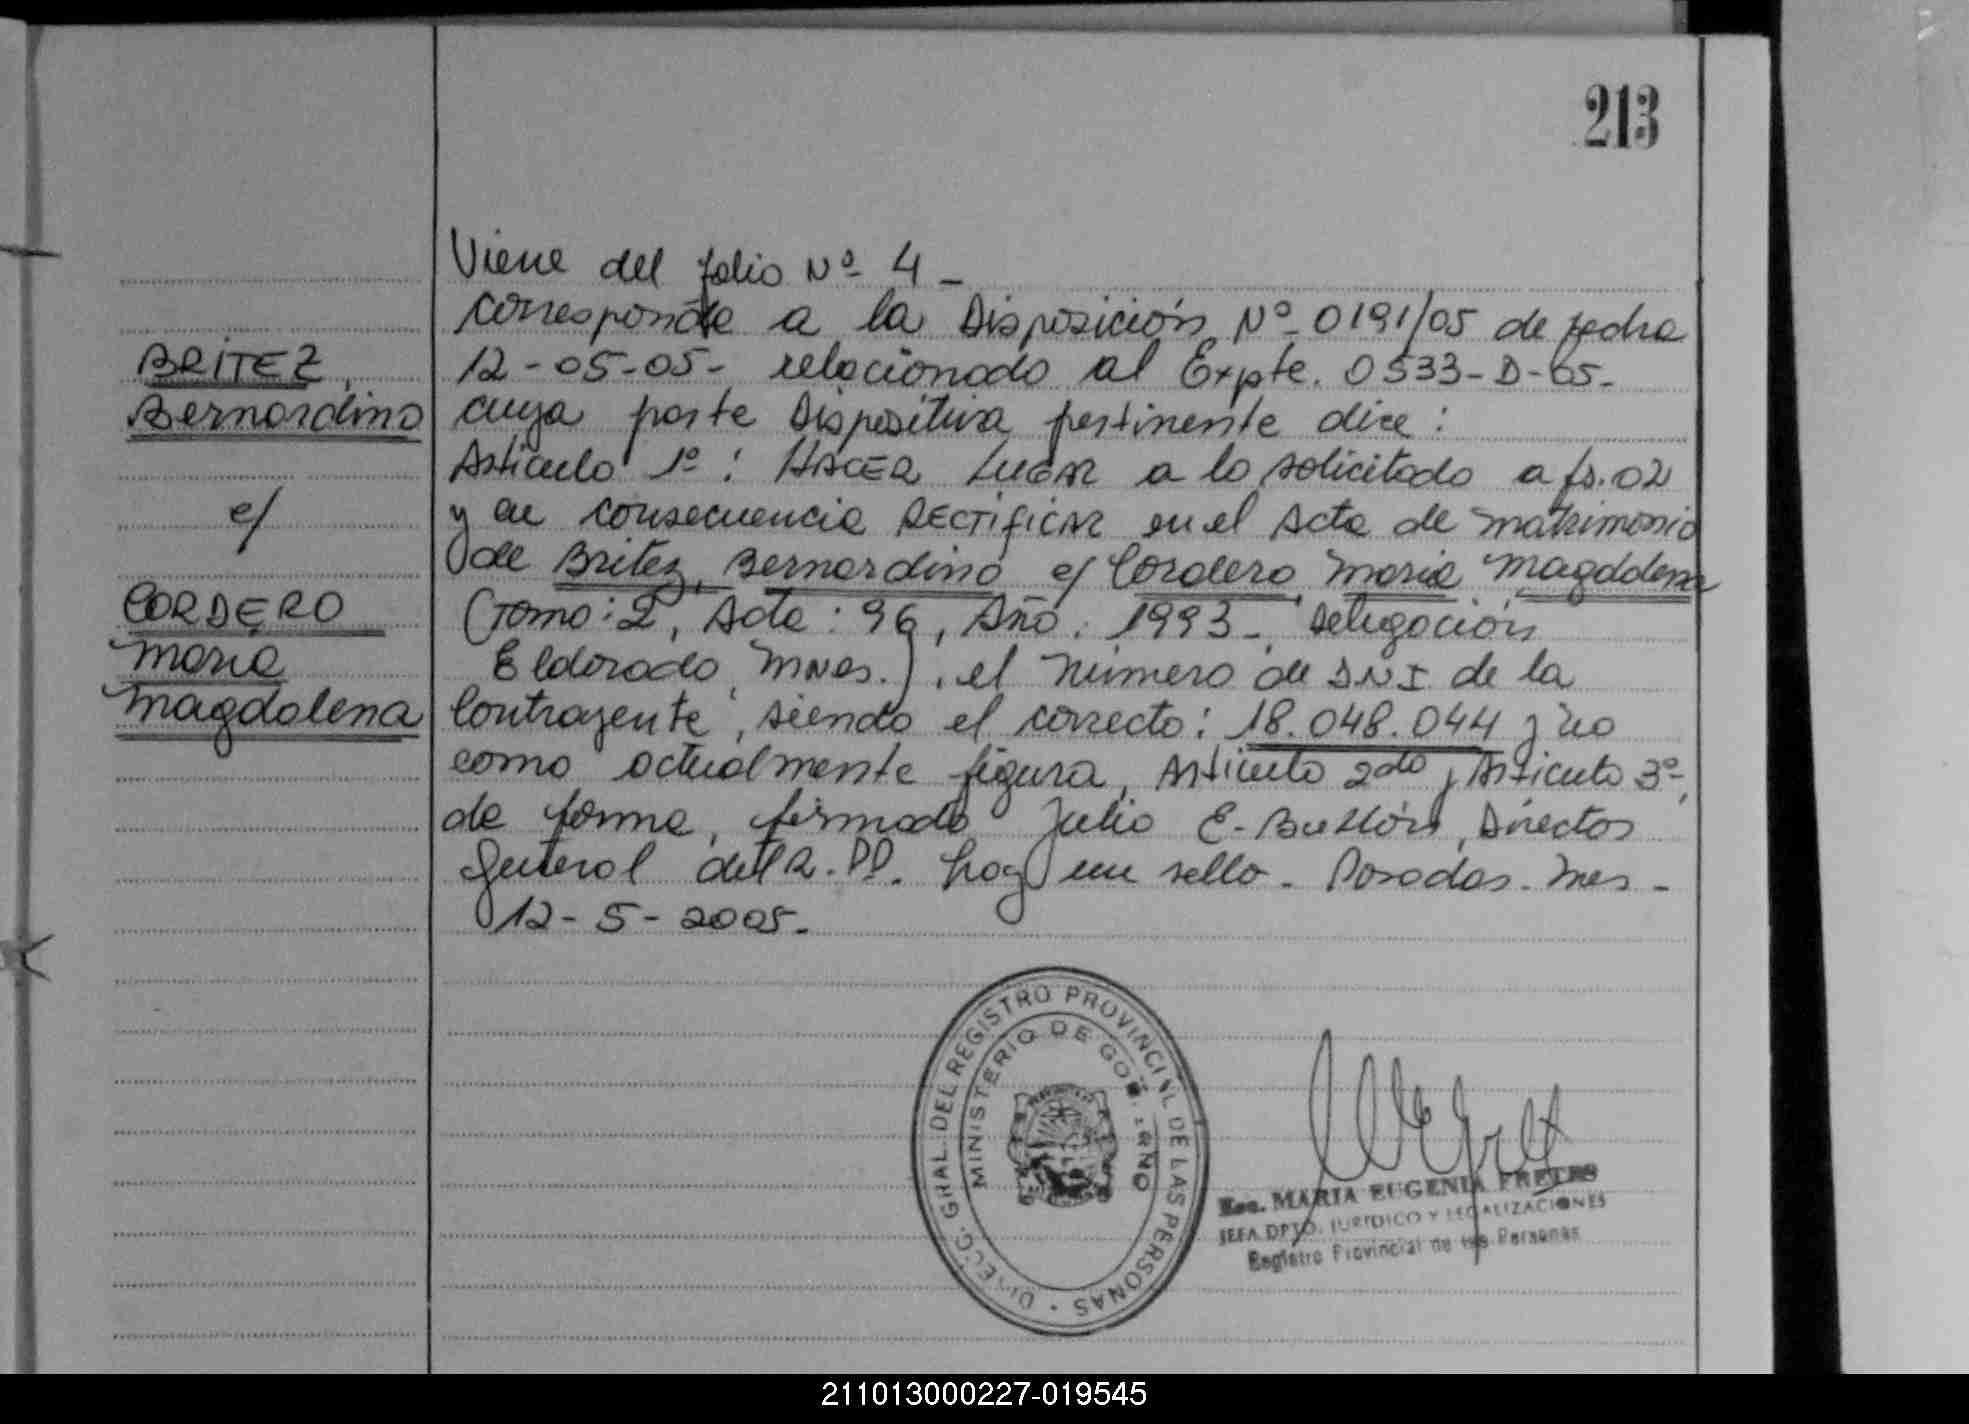 213
Viene del folio Nº 4 -
corresponde a la Disposición Nº 0191/05 de fecha
12-05-05- relacionado al Expte. 0533-D-05-
cuya parte Dispositiva pertinente dice:
Artículo 1º: HACER LUGAR a lo solicitado a fs. 02
y en consecuencia RECTIFICAR en el Acta de matrimonio
de Britez, Bernardino c/ Cordero Maria Magdalena
(Tomo: 2, Acta: 96, Año: 1993-, Delegación
Eldorado, Mnes.), el número de DNI de la
Contrayente, siendo el correcto: 18.048.044 y no
como actualmente figura, Artículo 2do y Artículo 3º,
de forma, firmado Julio E. Director
General del R.PP. hay un sello - Posadas - Mes -
12-5-2005.
BRITEZ,
Bernardino
c/
CORDERO
Maria
Magdalena
DIRECC. GRAL. DEL REGISTRO PROVINCIAL DE LAS PERSONAS
MINISTERIO DE GOBIERNO
Esc. MARIA EUGENIA FRETES
JEFA DPTO. JURIDICO Y LEGALIZACIONES
Registro Provincial de las Personas
211013000227-019545